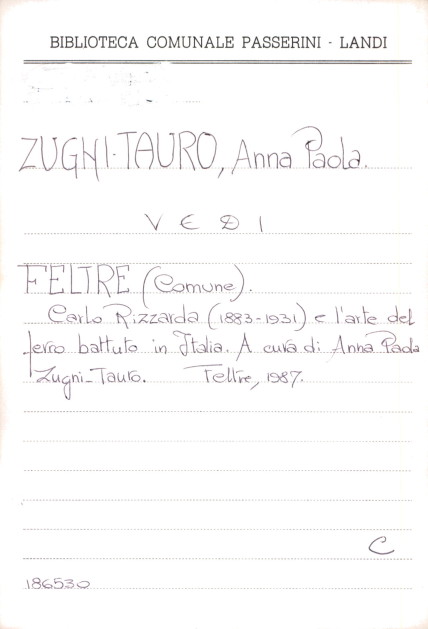 BIBLIOTECA COMUNALE PASSERINI - LANDI
ZUGNI-TAURO, Anna Paola.
VEDI
FELTRE (Comune).
Carlo Rizzarda (1883-1931) e l'arte del
ferro battuto in Italia. A cura di Anna Paola
Zugni-Tauro. Feltre, 1987.
C
186530